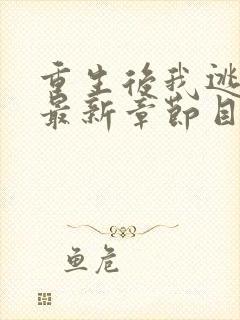 重生後我逃
最新章節目
鱼危